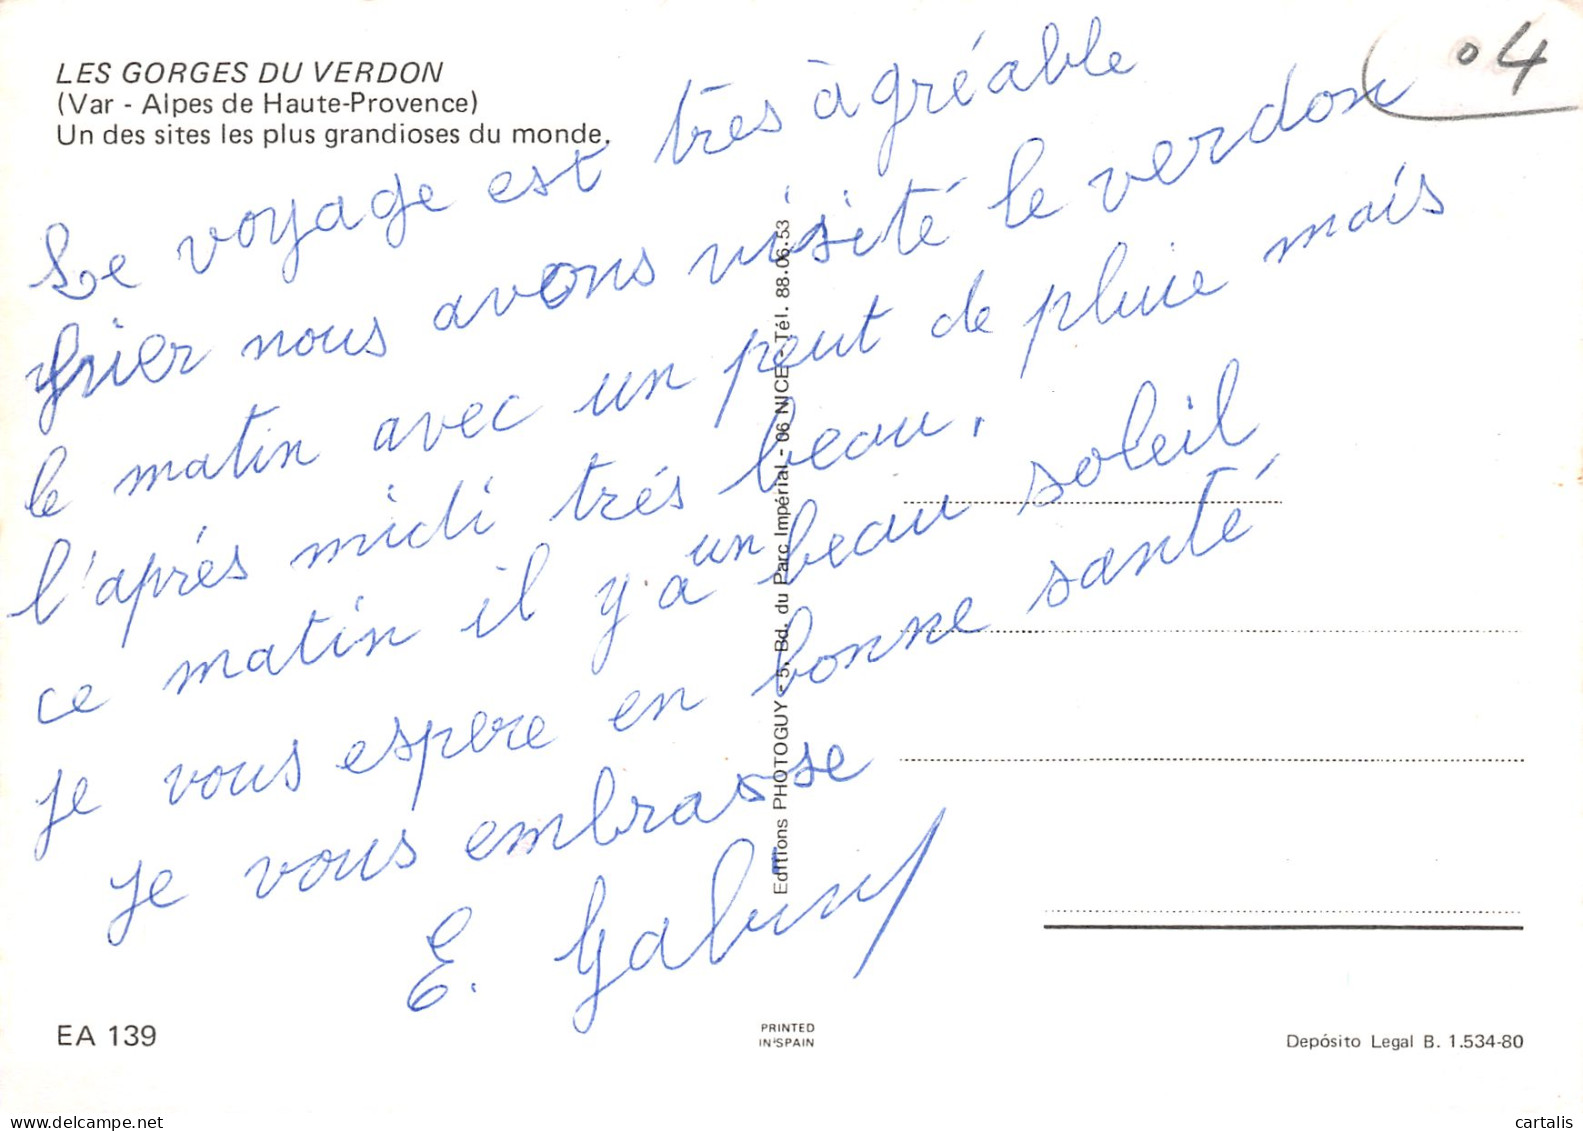 LES GORGES DU VERDON
(Var - Alpes de Haute-Provence)
Un des sites les plus grandioses du monde.
04
Le voyage est très àgréable
hier nous avons visité le verdon
le matin avec un peut de pluie mais
l'aprés midi trés beau.
ce matin il y a un beau soleil
je vous espere en bonne santé
je vous embrasse
E.
Editions PHOTOGUY - 5, Bd. du Parc Impérial - 06 NICE - Tél. 88.06.53
EA 139
PRINTED
IN SPAIN
Depósito Legal B. 1.534-80
delcampe.net
cartalis